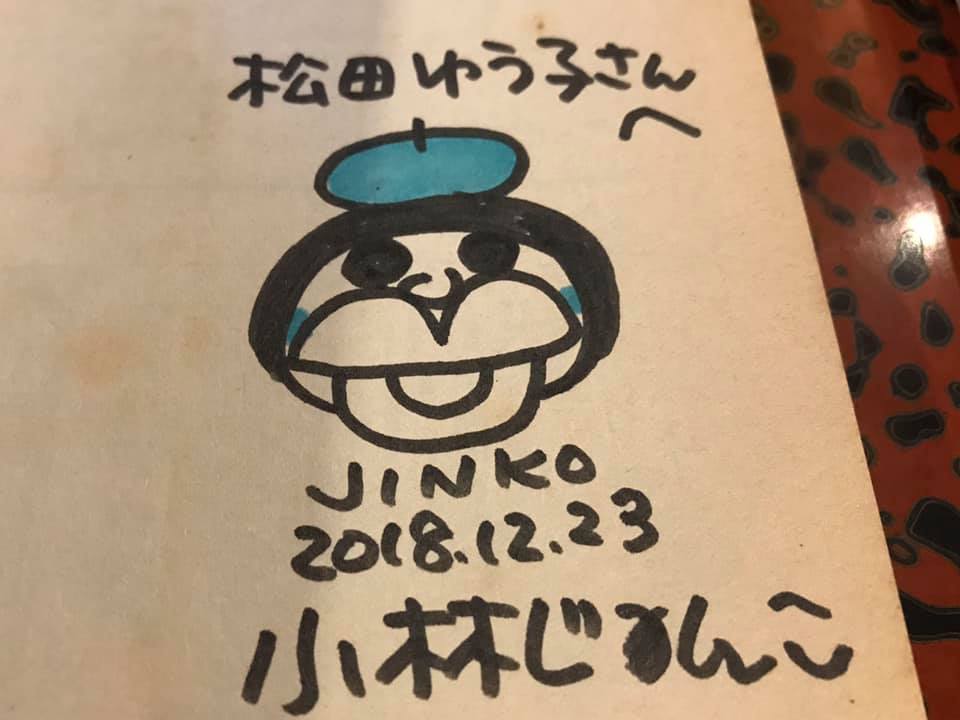 松田ゆう子さん
へ
JINKO
2018.12.23
小林じんこ